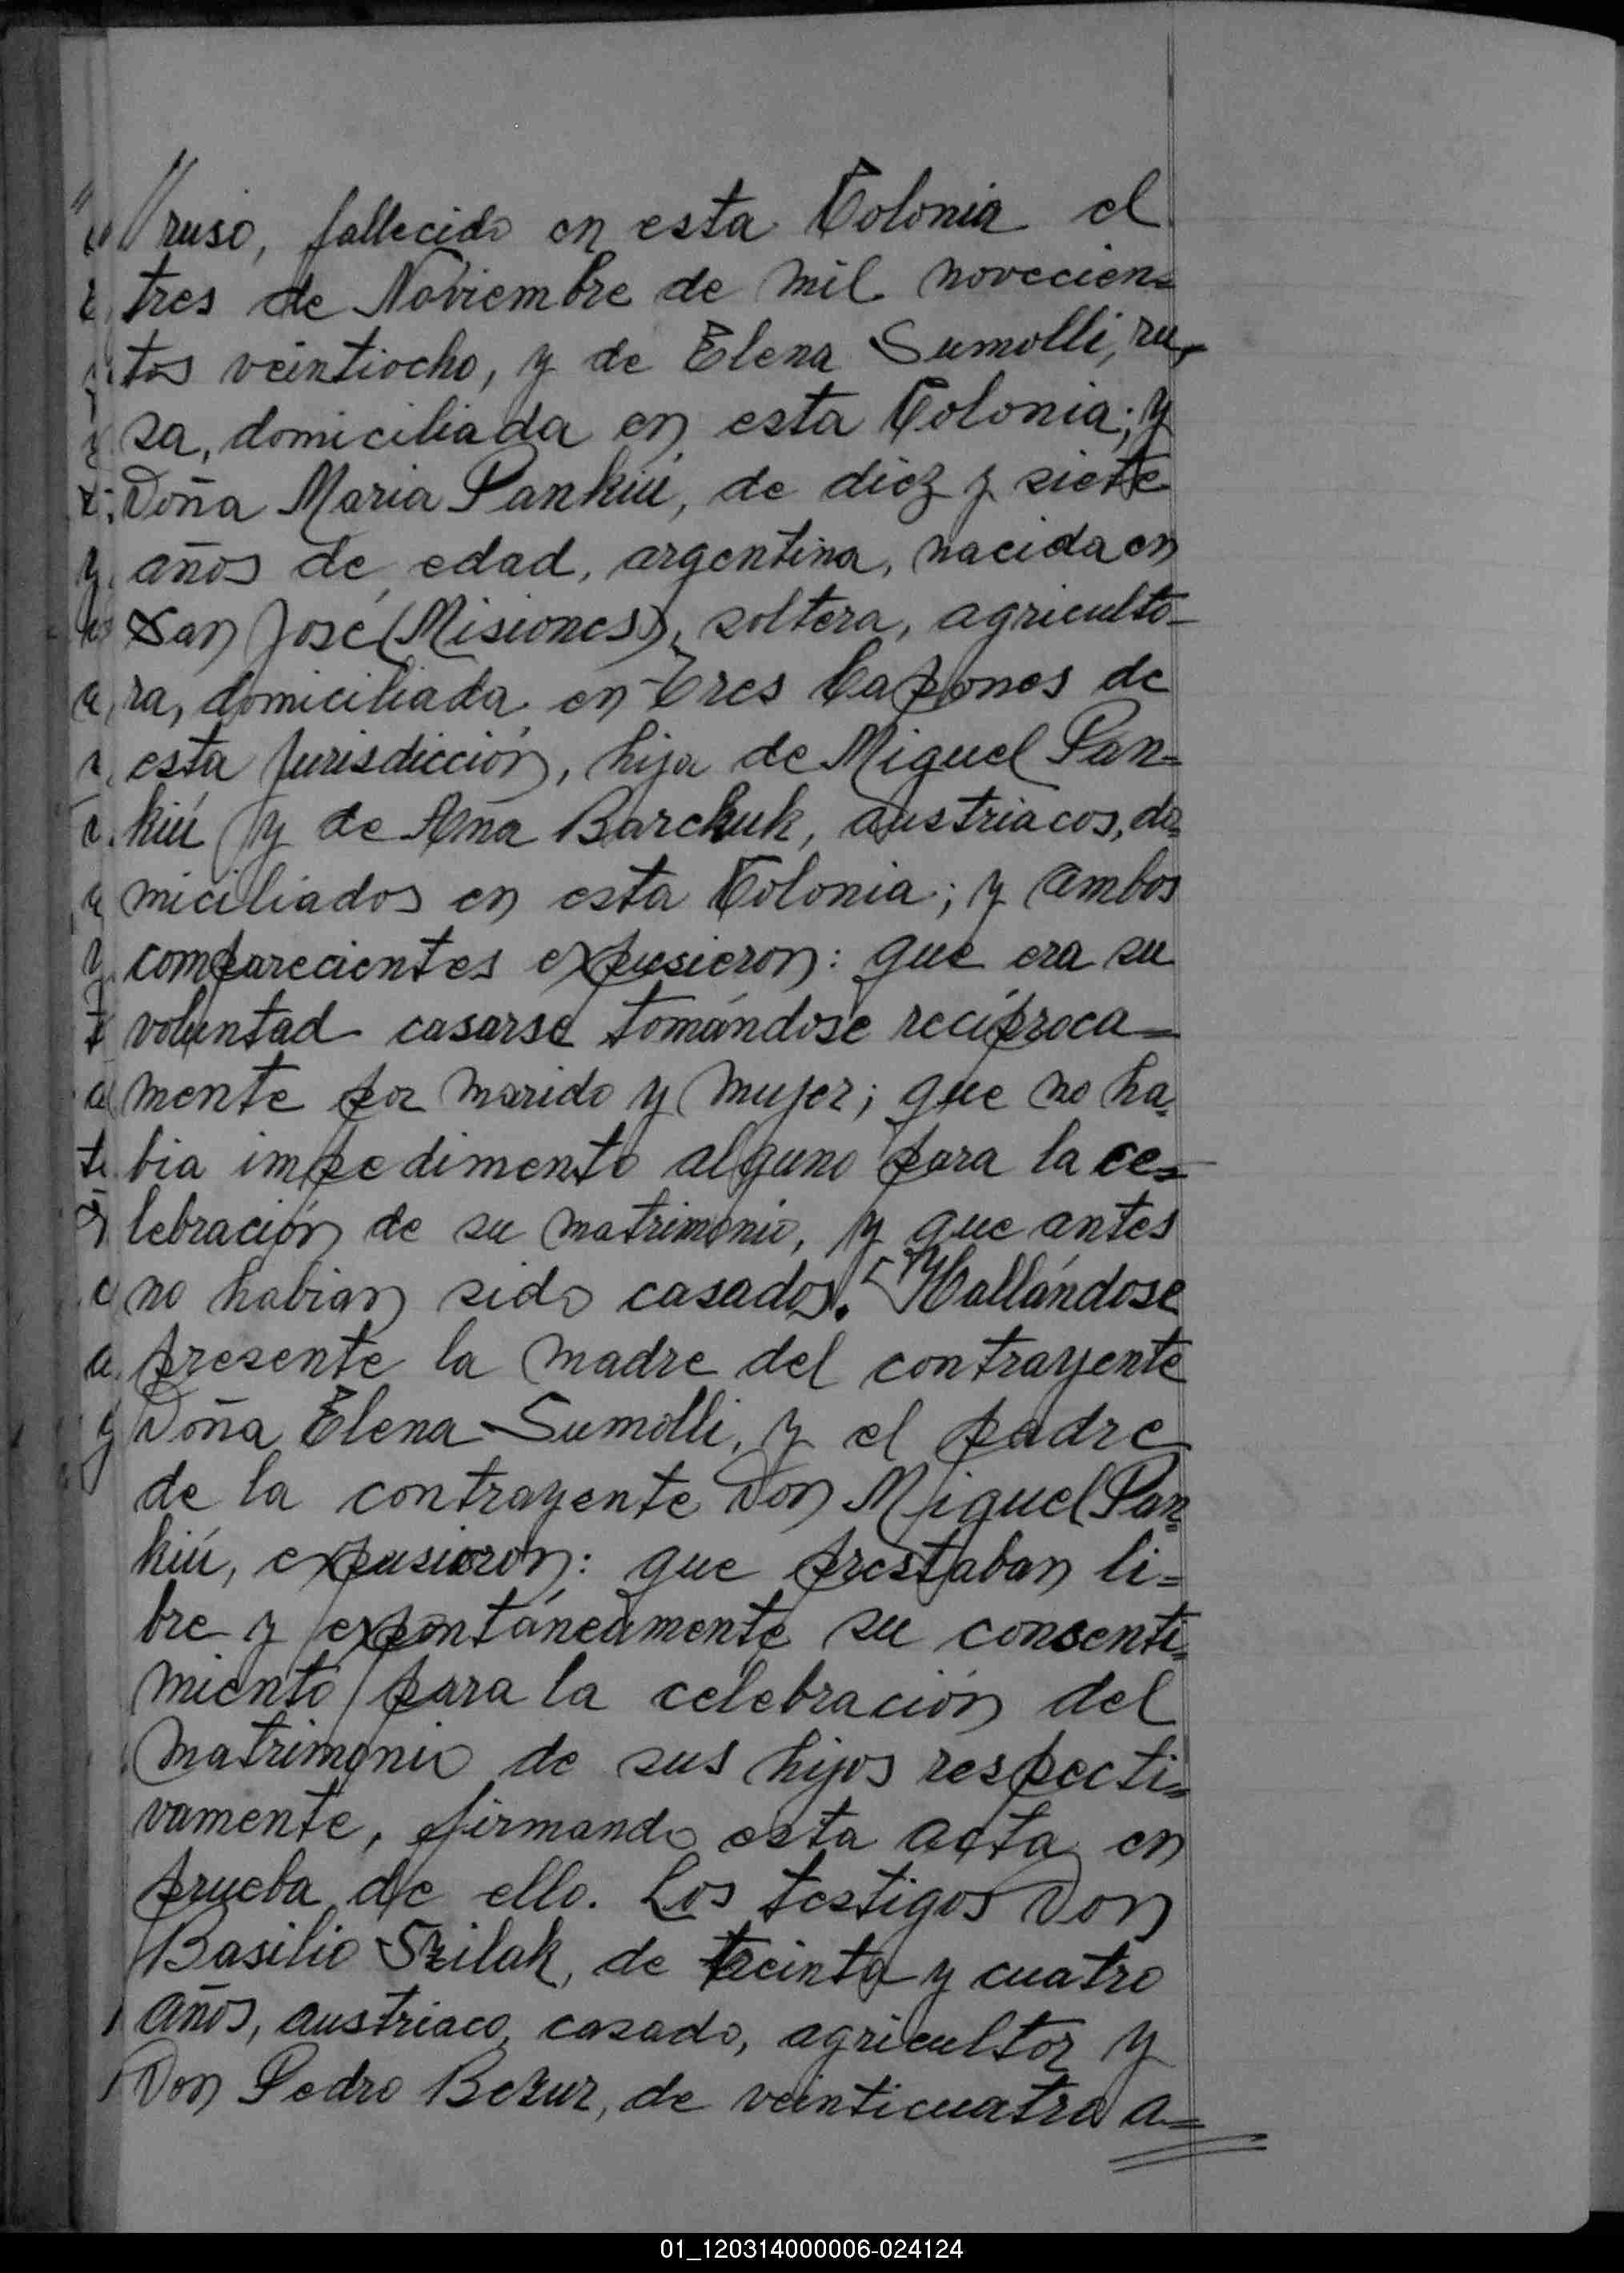 ruso, fallecido en esta Colonia el
tres de Noviembre de mil novecien=
tos veintiocho, y de Elena Sumolli, ru-
sa, domiciliada en esta Colonia; y
Doña Maria Pankiú, de diez y siete
años de edad, argentina, nacida en
San José (Misiones), soltera, agriculto-
ra, domiciliada en Tres Capones de
esta jurisdicción, hija de Miguel Pan=
kiú y de Ana Barchuk, austriacos, do=
miciliados en esta Colonia; y ambos
comparecientes expusieron: que era su
voluntad casarse tomándose recíproca=
mente por marido y mujer; que no ha=
bia impedimento alguno para la ce=
lebración de su matrimonio, y que antes
no habian sido casados. Hallándose
presente la madre del contrayente
Doña Elena Sumolli, y el padre
de la contrayente Don Miguel Pan=
kiú, expusieron: que prestaban li=
bre y expontáneamente su consenti=
miento para la celebración del
matrimonio de sus hijos respecti=
vamente, firmando esta acta en
prueba de ello. Los testigos Don
Basilio Szilak, de treinta y cuatro
años, austriaco, casado, agricultor y
Don Pedro Bezur, de veinticuatro a=
01_120314000006-024124